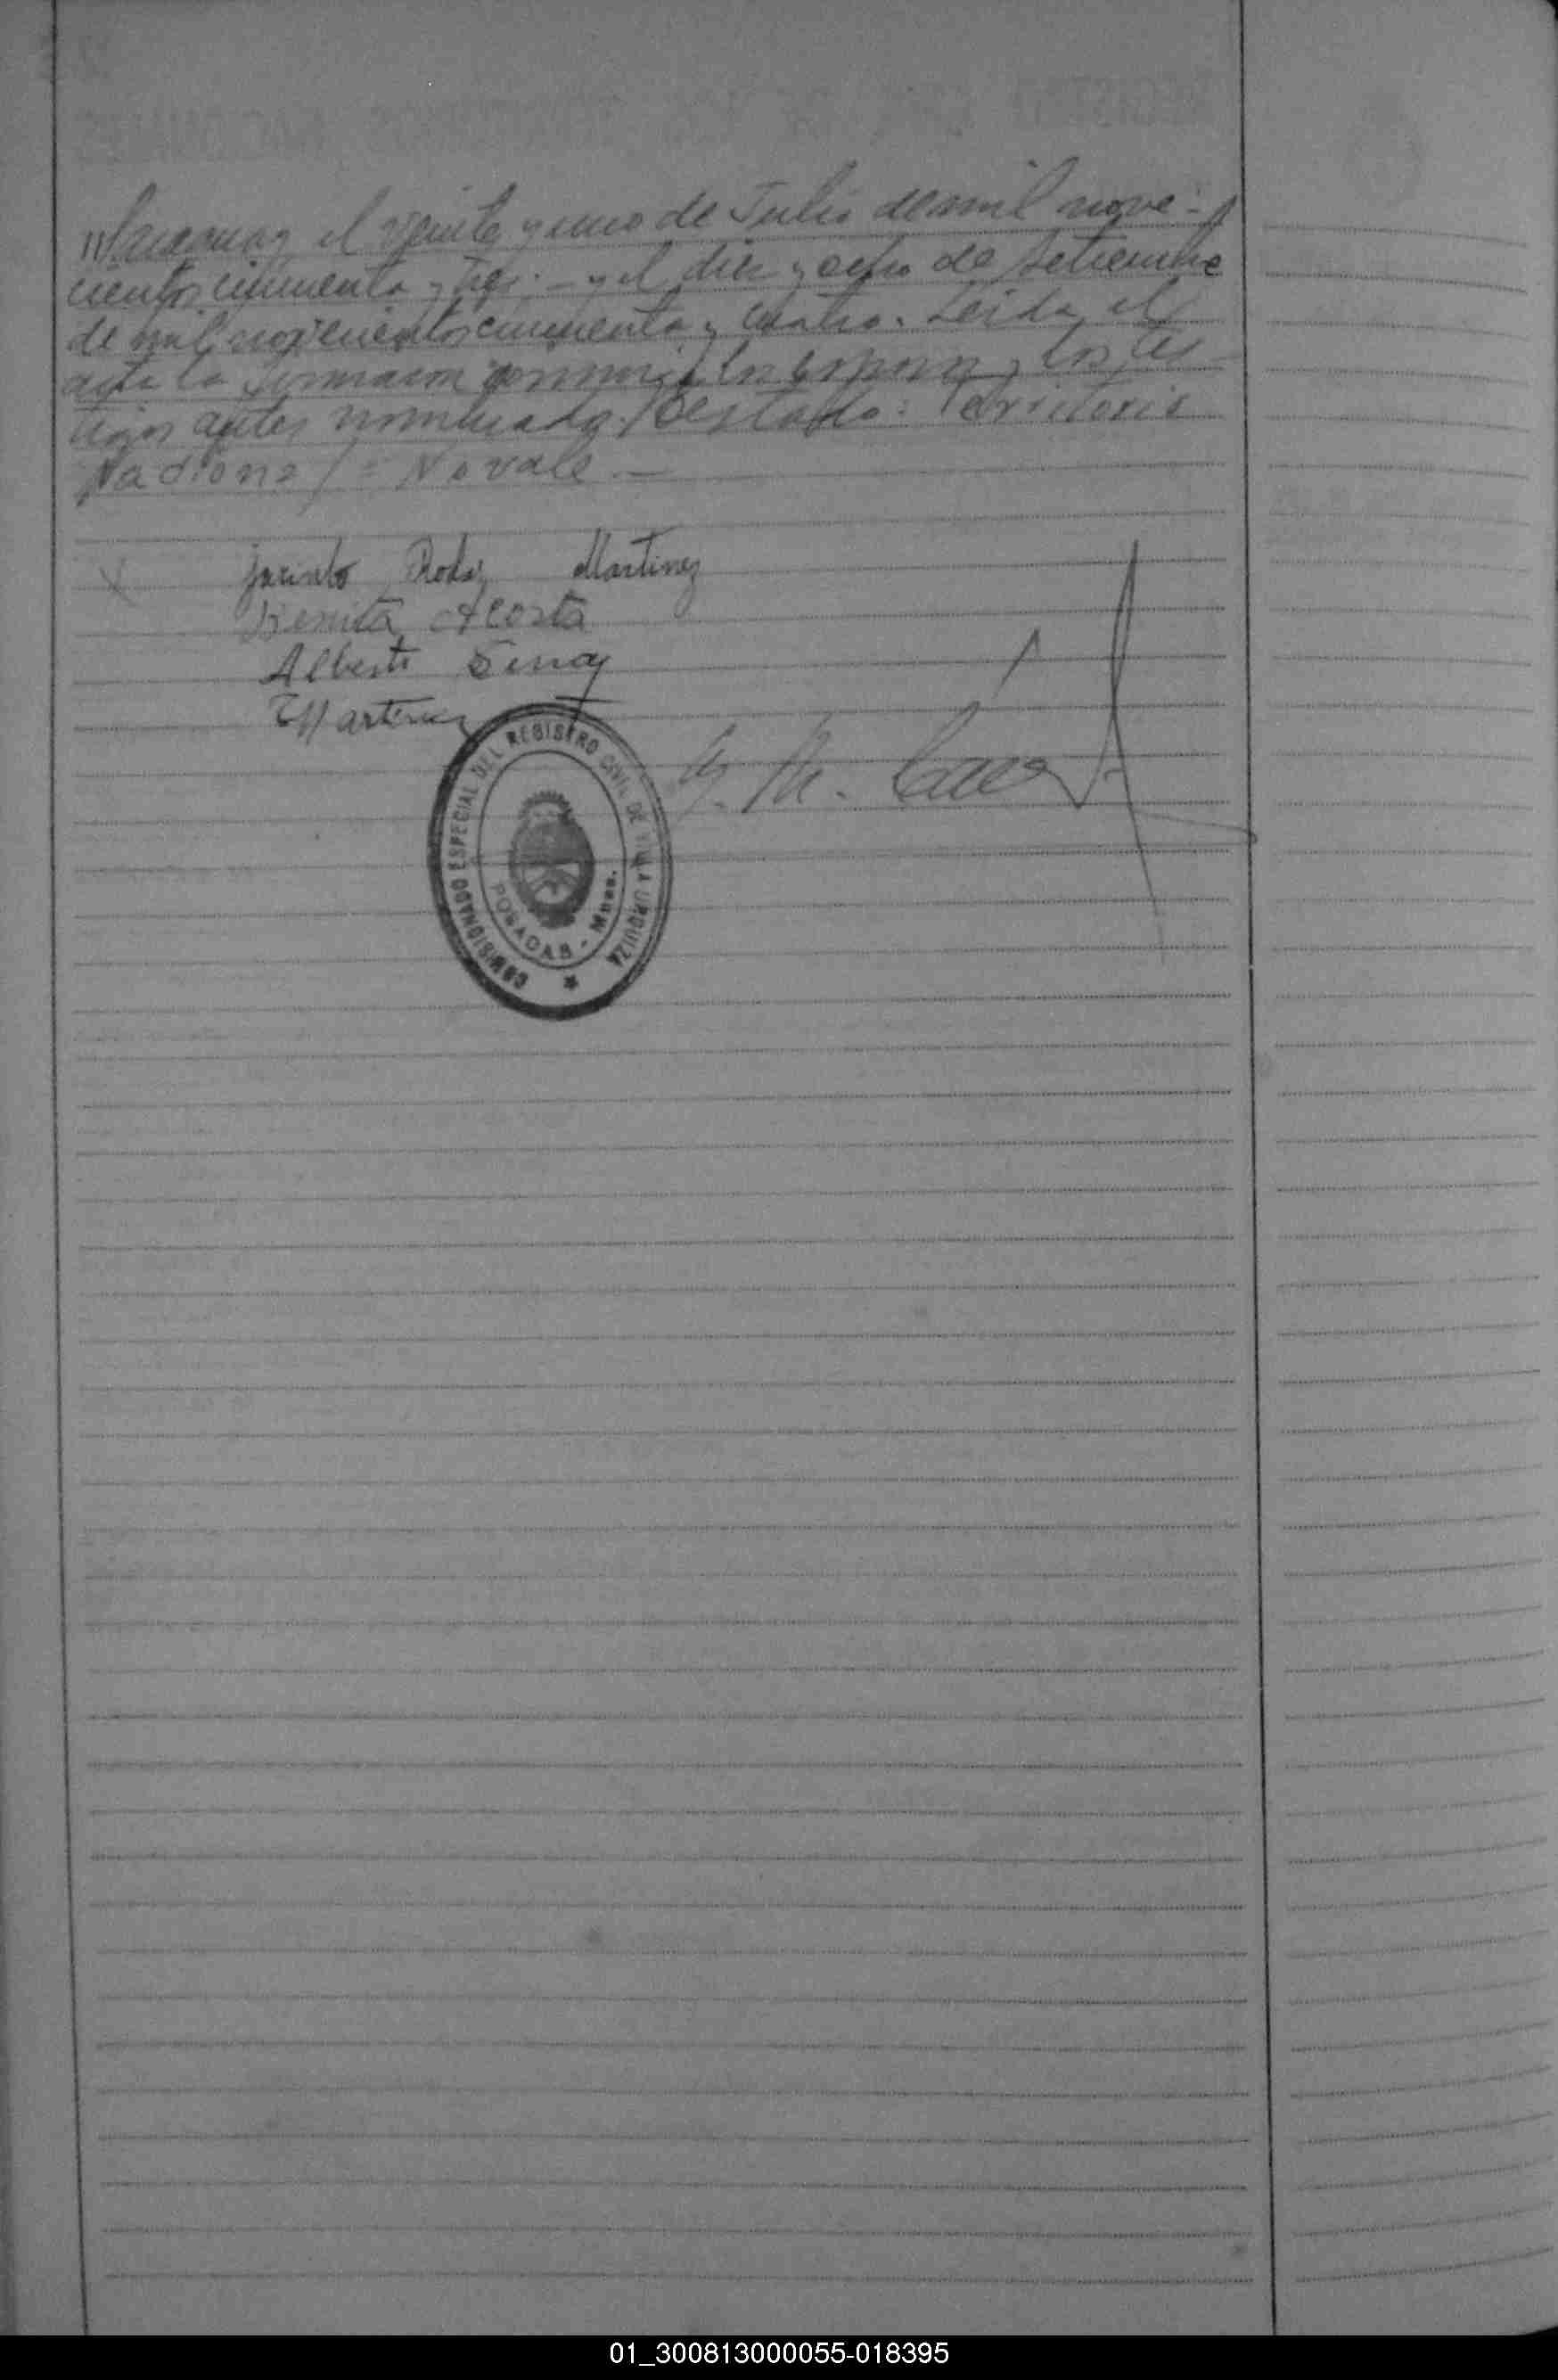 el veinte y uno de Julio de mil nove-
cientos cincuenta y tres.- y el diez y ocho de Setiembre
de mil novecientos cincuenta y cuatro. Leida el
acta la firmaron conmigo los esposos y los tes-
tigos antes nombrados. Testado: Territorio
Nacional = No vale —
Jacinto Rodz Martinez
Benita Acosta
Alberto
Martinez
COMISIONADO ESPECIAL DEL REGISTRO CIVIL DE VILLA URQUIZA
POSADAS - Mnes.
01_300813000055-018395